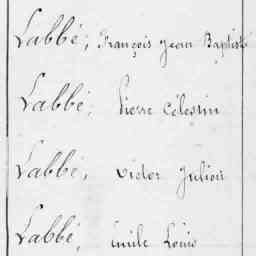 Labbé, François Jean Baptiste
Labbé, Pierre Célestin
Labbé, Victor Julien
Labbé, Emile Louis